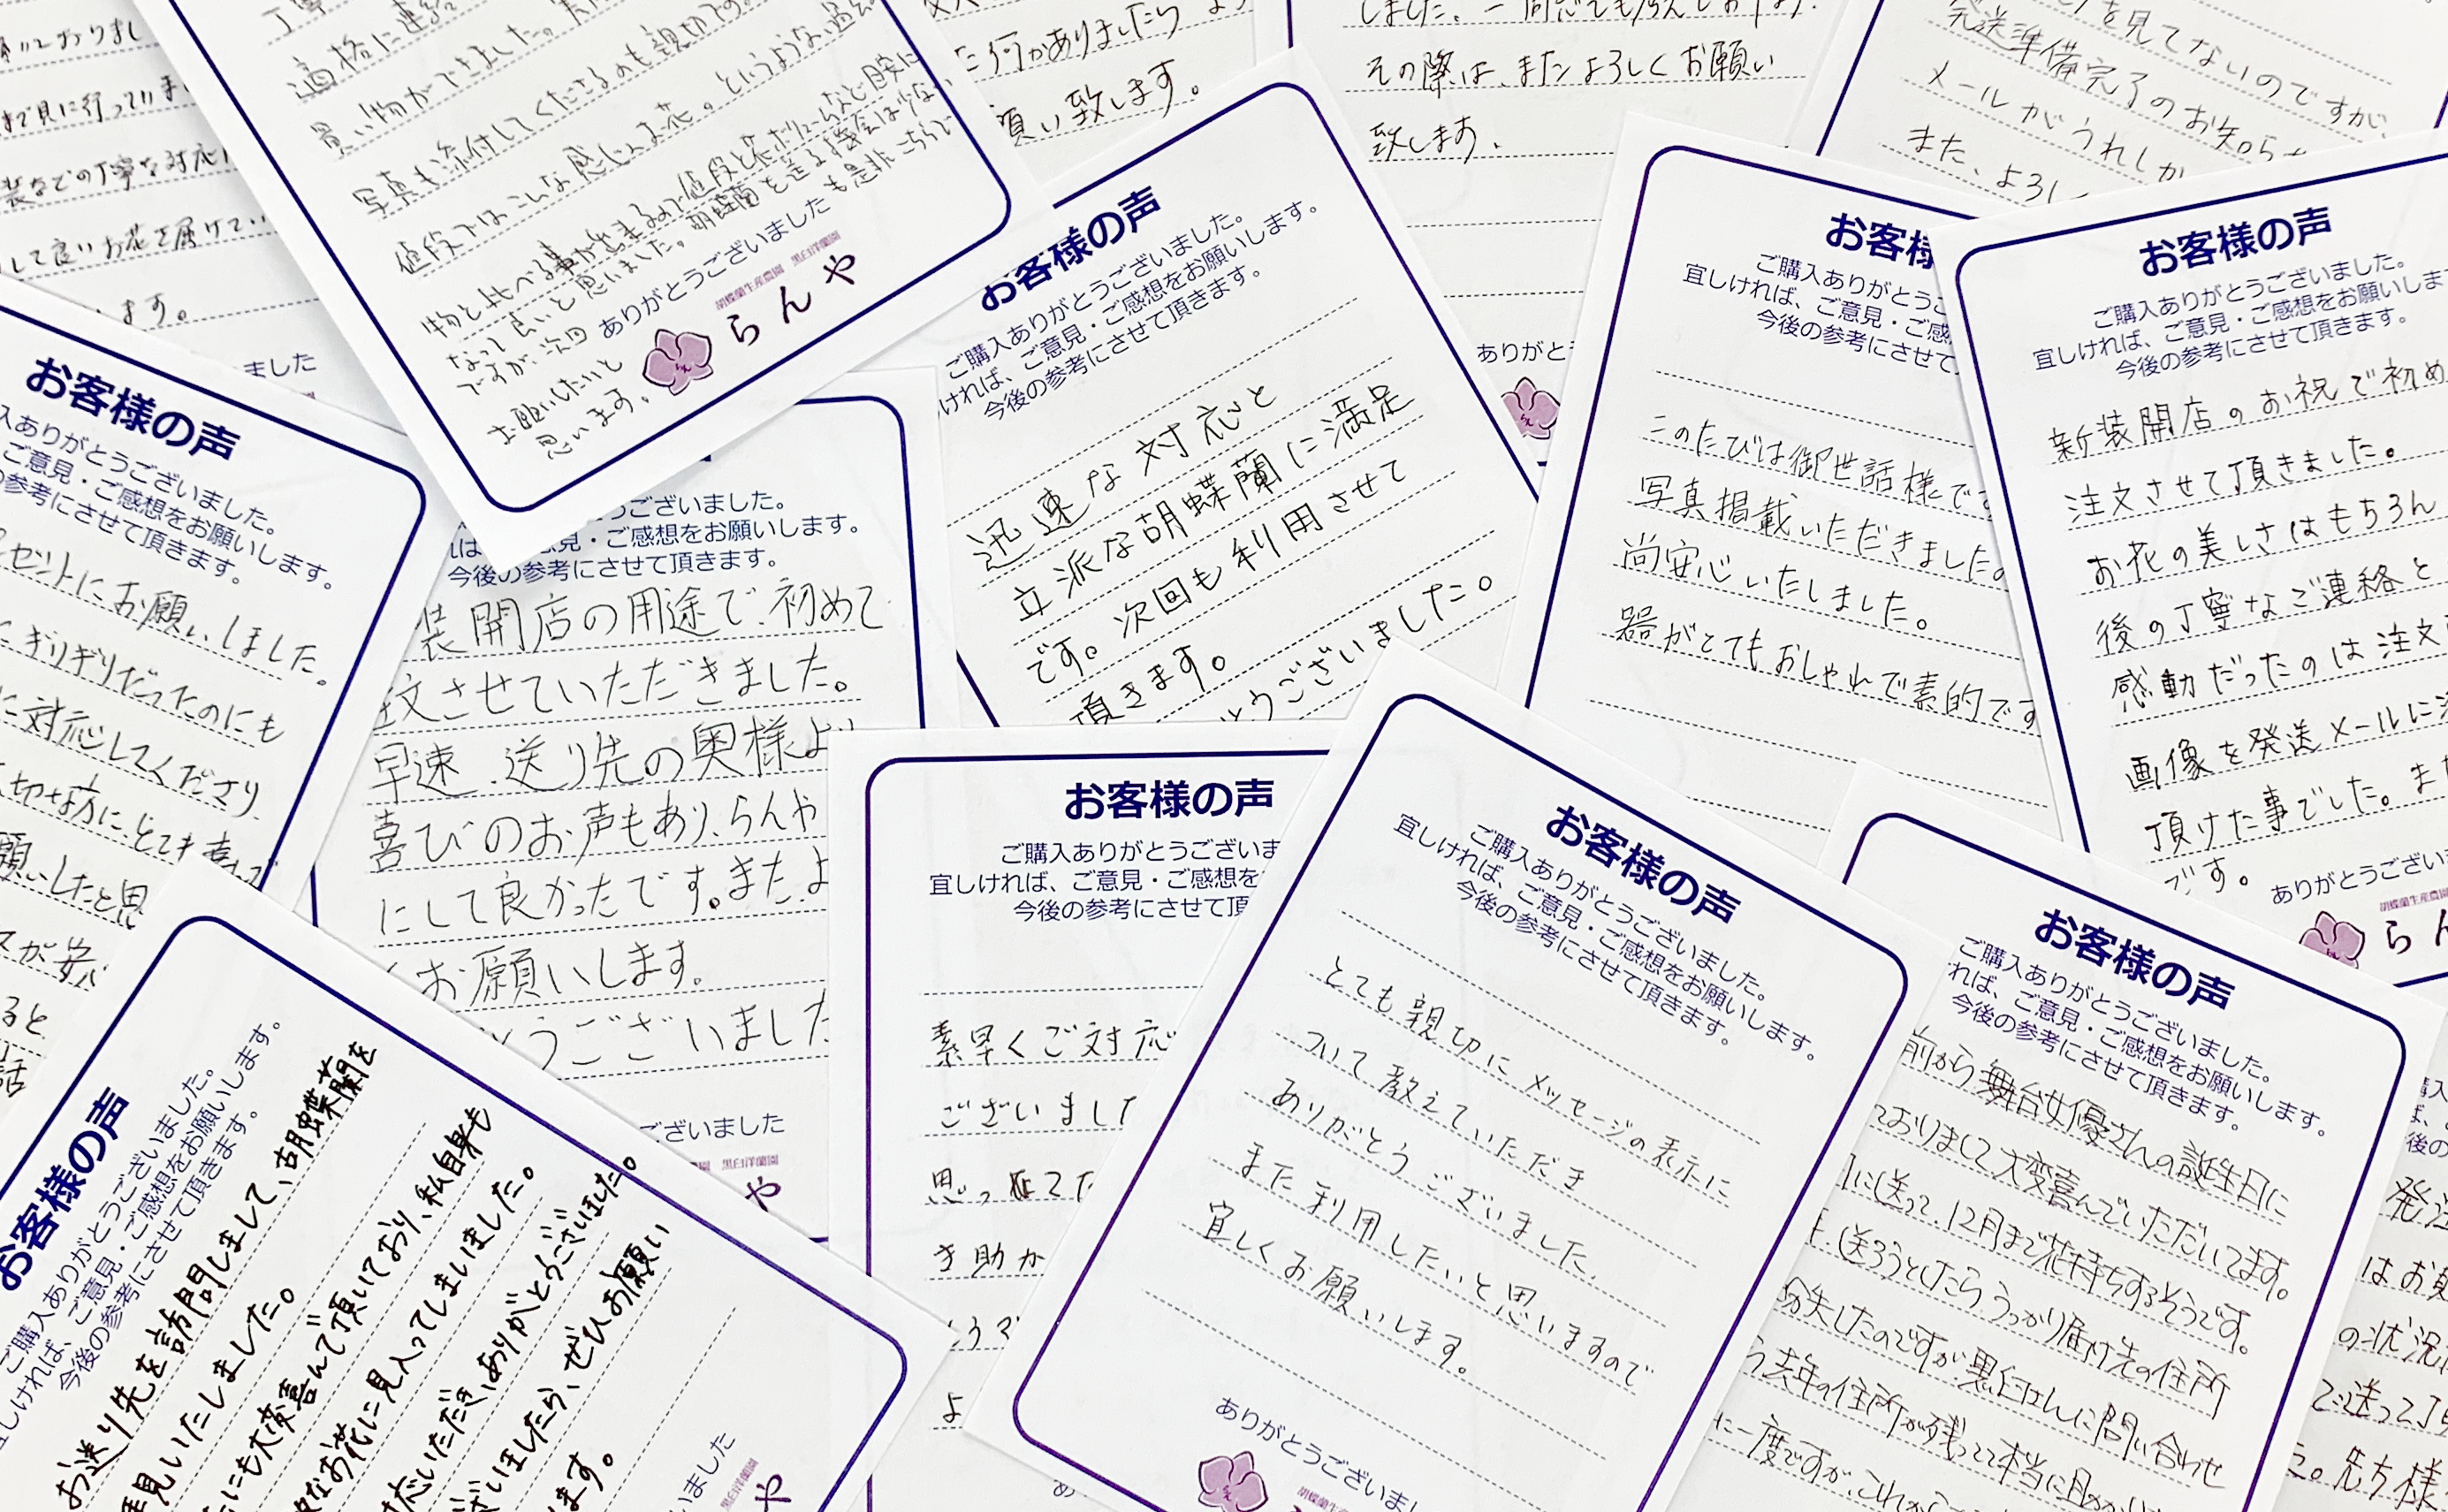 適格に連絡
買い物ができました。
写真も添付してくださるのも親切です。
値段ではこんな感じのお花。というような過去
物と比べる事が出来るので値段と花ボリュームなど目安に
なって良いと思いました。胡蝶蘭を送る機会は少ない
ですが、次回も是非こちらで
お願いしたいと
思います。
ありがとうございました
胡蝶蘭生産農園 黒臼洋蘭園
らんや
まで見に行って
の丁寧な対応
して良いお花を届けて
ます。
ました
何かありましたら
願い致します。
その際は、またよろしくお願い
致します。
ありがと
を見てないのですが、
発送準備完了のお知ら
メールがうれしか
また、よろし
お客様の声
入ありがとうございました。
ご意見・ご感想をお願いします。
の参考にさせて頂きます。
セントにお願いしました。
ぎりぎりだったのにも
に対応してくださり、
切な方に、とても喜んで
願いしたと思
スが安い
ると
話
ございました。
ご意見・ご感想をお願いします。
今後の参考にさせて頂きます。
装開店の用途で、初めて
注文させていただきました。
早速、送り先の奥様よ
喜びのお声もあり、らんや
にして良かったです。またよ
お願いします。
うございました
ございました
黒臼洋蘭園
や
お客様の声
ご購入ありがとうございました。
ければ、ご意見・ご感想をお願いします。
今後の参考にさせて頂きます。
迅速な対応と
立派な胡蝶蘭に満足
です。次回も利用させて
頂きます。
うございました。
お客様
ご購入ありがとうご
宜しければ、ご意見・ご感
今後の参考にさせて
このたびは御世話様で
写真掲載いただきました
尚安心いたしました。
器がとてもおしゃれで素的です
お客様の声
ご購入ありがとうございました。
宜しければ、ご意見・ご感想をお願いしま
今後の参考にさせて頂きます。
新装開店のお祝で初め
注文させて頂きました。
お花の美しさはもちろん
後の丁寧なご連絡と
感動だったのは注文
画像を発送メールに
頂けた事でした。また
です。
ありがとうござい
胡蝶蘭生産農園
らん
お客様の声
ご購入ありがとうございました。
宜しければ、ご意見・ご感想をお願いします。
今後の参考にさせて頂きます。
お送り先を訪問しまして、胡蝶蘭を
拝見いたしました。
にも大変喜んで頂いており、私自身も
なお花に見入ってしまいました。
いただき、ありがとうございました。
ざいましたら、ぜひお願い
ます。
いました
黒臼洋蘭園
や
お客様の声
ご購入ありがとうございま
宜しければ、ご意見・ご感想を
今後の参考にさせて頂
素早くご対応
ございました
思っ
助か
よ
お客様の声
ご購入ありがとうございました。
宜しければ、ご意見・ご感想をお願いします。
今後の参考にさせて頂きます。
とても親切にメッセージの表示に
ついて教えていただき
ありがとうございました。
また利用したいと思いますので
宜しくお願いします。
ありがとうございまし
胡蝶蘭生産農園
お客様の声
ご購入ありがとうございました。
れば、ご意見・ご感想をお願いします。
今後の参考にさせて頂きます。
前から舞台女優さんの誕生日に
ておりまして大変喜んでいただいてます。
に送って、12月まで花持ちするそうです。
送ろうとしたら、うっかり届け先の住所
紛失したのですが、黒臼さんに問い合わせ
去年の住所が残ってて本当に
に一度ですが、これから
発注
はお
の状況
で送って
先方様